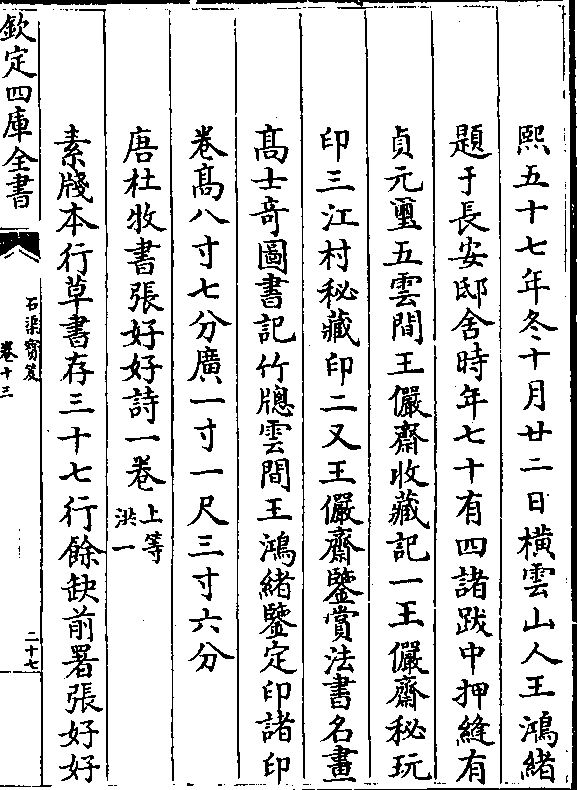 熙五十七年冬十月廿二日橫雲山人王鴻緒
題于長安邸舍時年七十有四諸跋中押縫有
貞元璽五雲間王儼齋收藏記一王儼齋秘玩
印三江村秘藏印二又王儼齋鑒賞法書名畫
高士竒圖書記竹牕雲間王鴻緒鑒定印諸印
卷髙八寸七分廣一寸一尺三寸六分
唐杜牧書張好好詩一卷上等洪一
素牋本行草書存三十七行餘缺前署張好好
欽定四庫全書
石渠寳笈
卷十三
二十七